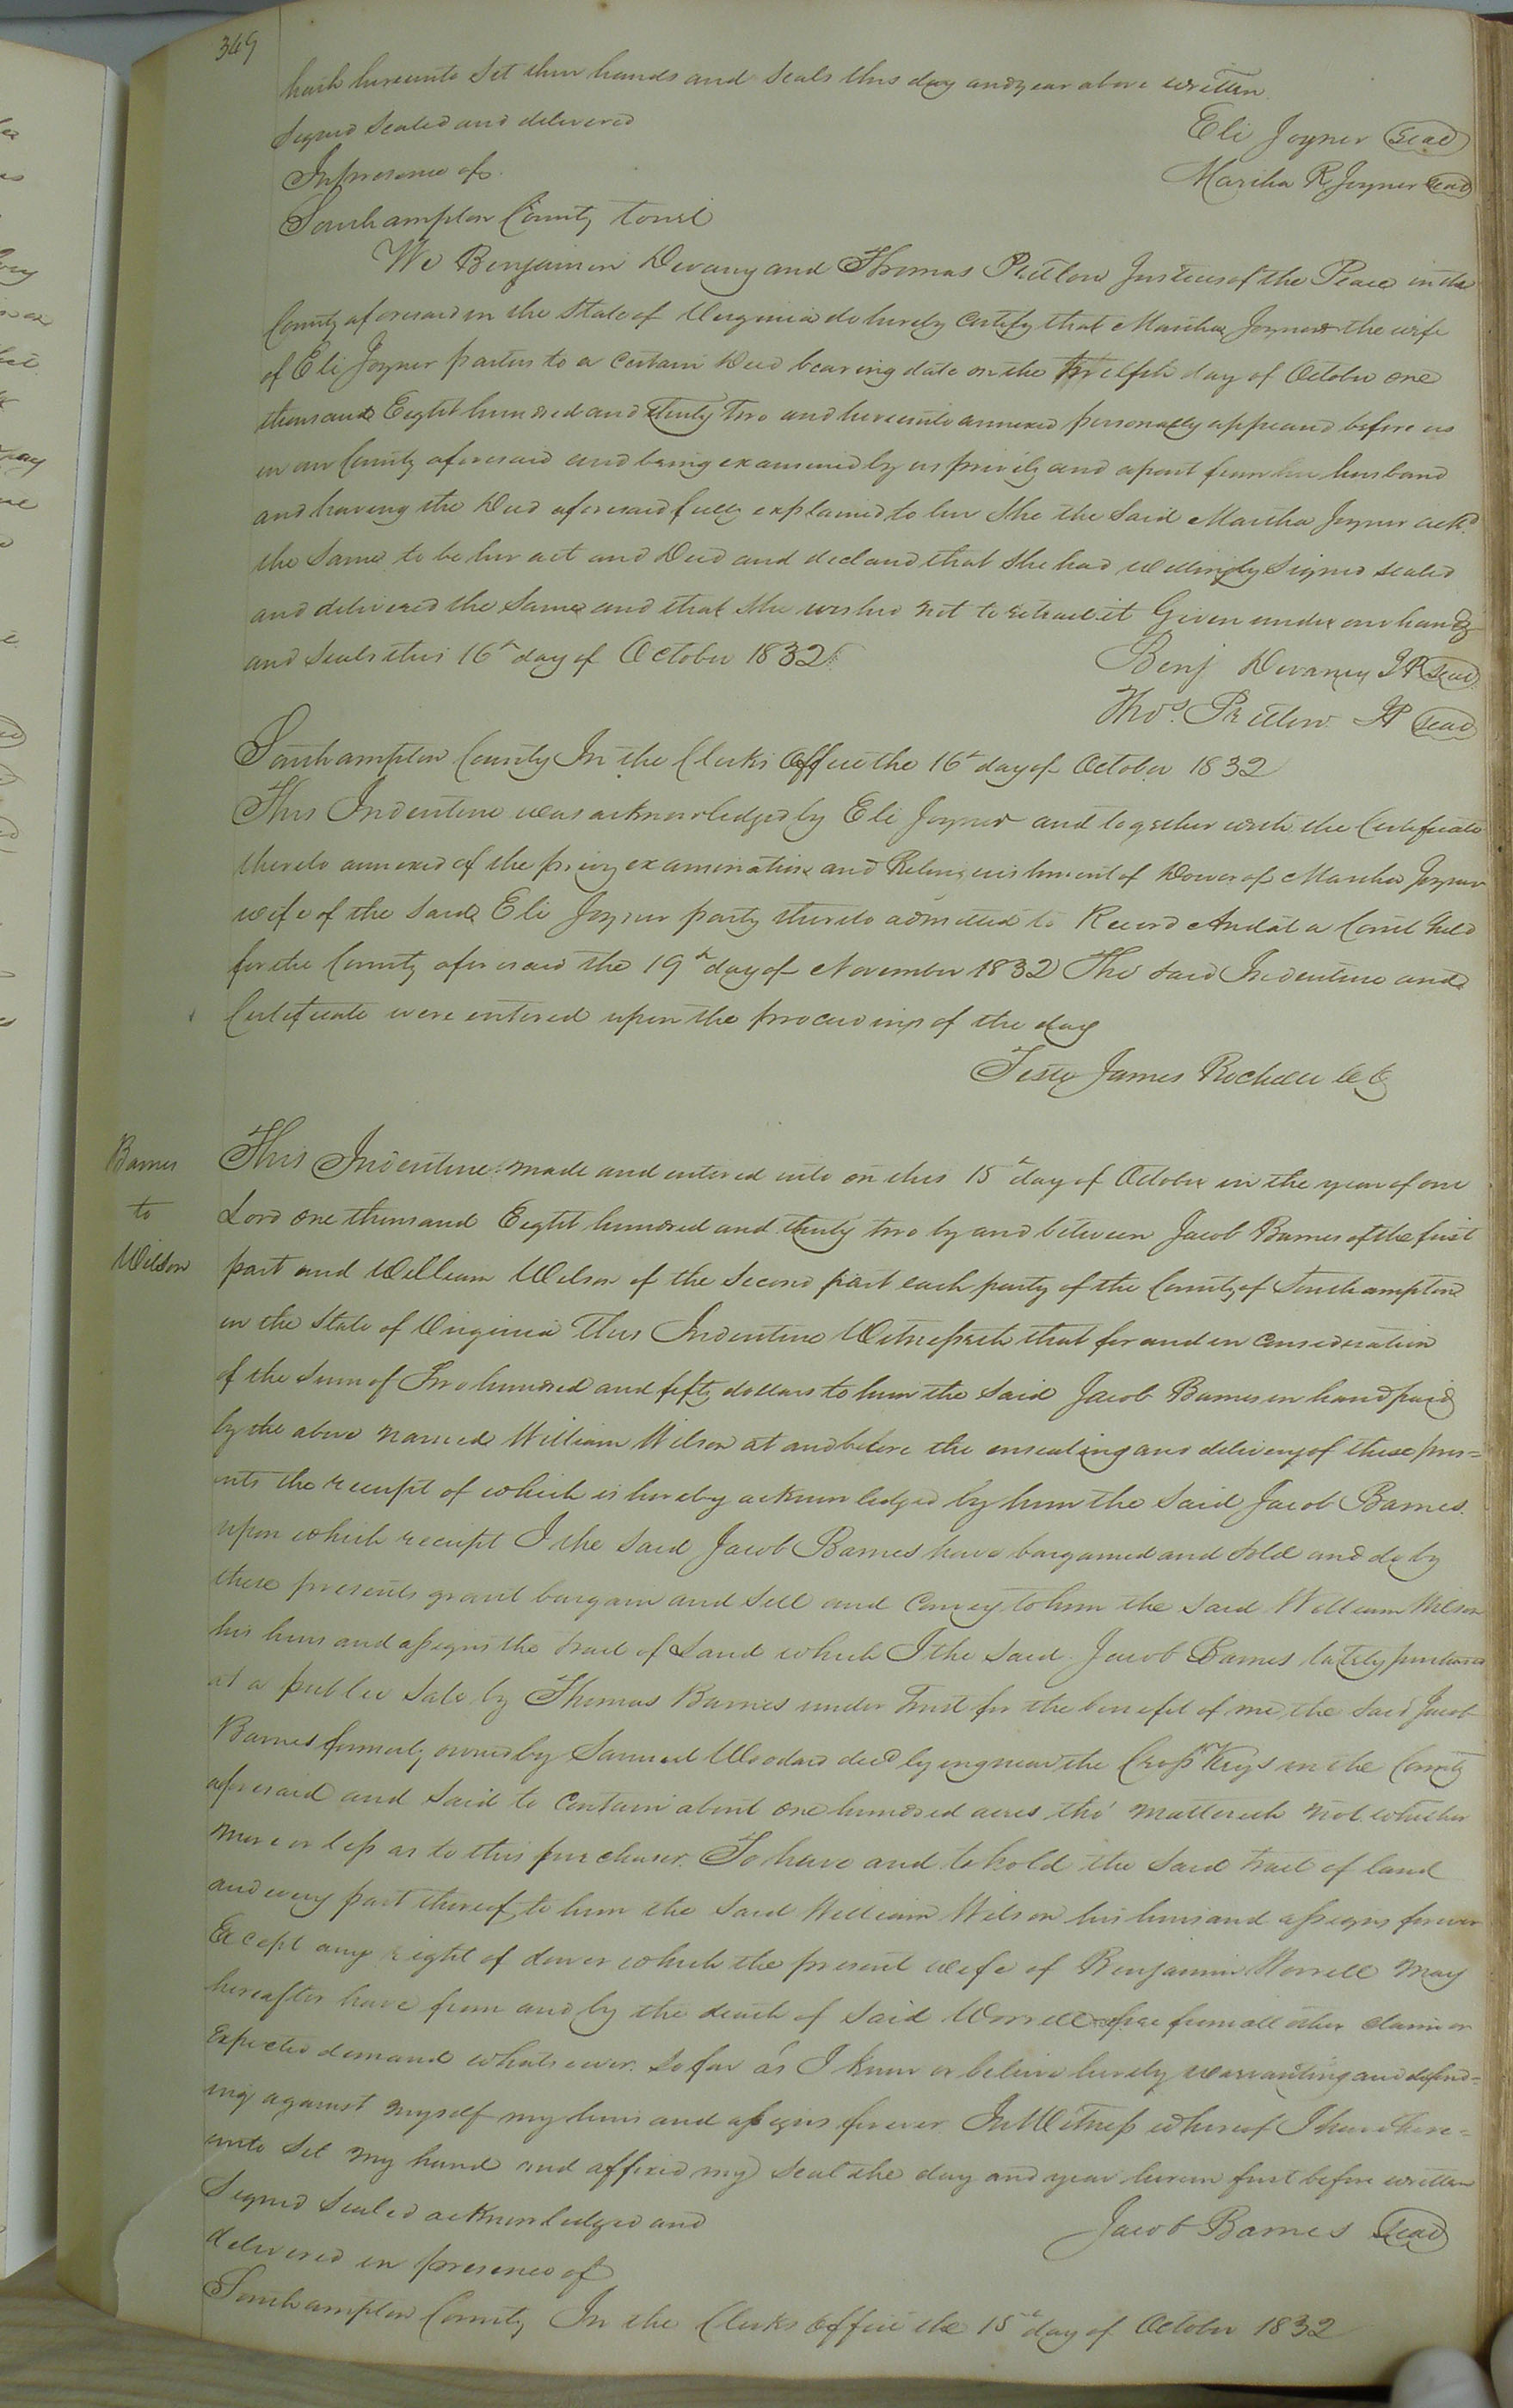 349
hath hereunto set their hands and seals this day and year above written
Signed Sealed and delivered
Eli Joyner Seal
In presence of
Martha R Joyner Seal
Southampton County towit
We Benjamin Devany and Thomas Pretlow Justices of the Peace in the
County aforesaid in the State of Virginia do hereby certify that Martha Joyner the wife
of Eli Joyner parties to a certain Deed bearing date on the twelfth day of October one
thousand Eight hundred and thirty two and hereunto annexed personally appeared before us
in our County aforesaid and being examined by us privily and apart from her husband
and having the Deed aforesaid fully explained to her She the said Martha Joyner ackd
the same to be her act and Deed and declared that She had willingly Signed sealed
and delivered the same and that she wished not to retract it Given under our hands
and Seals this 16th day of October 1832
Benj Devaney JP Seal
Thos. Pretlow JP Seal
Southampton County In the Clerks Office the 16th day of October 1832
This Indenture was acknowledged by Eli Joyner and together with the Certificate
thereto annexed of the privy examination and Relinquishment of Dower of Martha Joyner
wife of the said Eli Joyner party thereto admitted to Record And at a Court held
for the County aforesaid the 19th day of November 1832 The said Indenture and
Certificate were entered upon the proceedings of the day
Teste James Rochelle CC
Barnes
to
Wilson
This Indenture made and entered into on this 15th day of October in the year of our
Lord one thousand Eight hundred and thirty two by and between Jacob Barnes of the first
part and William Wilson of the second part each party of the County of Southampton
in the State of Virginia This Indenture Witnesseth that for and in consideration
of the sum of Two hundred and fifty dollars to him the said Jacob Barnes in hand paid
by the above named William Wilson at and before the ensealing and delivery of these pres=
ents the receipt of which is hereby acknowledged by him the said Jacob Barnes.
upon which receipt I the said Jacob Barnes have bargained and sold and do by
these presents grant bargain and sell and convey to him the said William Wilson
his heirs and assigns the tract of Land which I the said Jacob Barnes lately purchased
at a public sale by Thomas Barnes under Trust for the benefit of me the said Jacob
Barnes formerly owned by Samuel Woodard decd lying near the Cross Keys in the County
aforesaid and said to contain about one hundred acres tho' mattereth not whether
more or less as to this purchaser. To have and to hold the said tract of land
and every part thereof to him the said William Wilson his heirs and assigns forever
Except any right of dower which the present wife of Benjamin Worrell may
hereafter have from and by the death of said Worrell free from all other claim or
Expected demand whatsoever. So far as I know or believe hereby warranting and defend=
ing against myself my heirs and assigns forever In Witness whereof I have here=
unto set my hand and affixed my seal the day and year herein first before written
Signed Sealed acknowledged and
Jacob Barnes Seal
delivered in presence of
Southampton County In the Clerks office the 15th day of October 1832